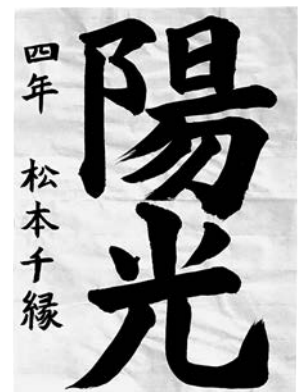 陽光
四年 松本千縁